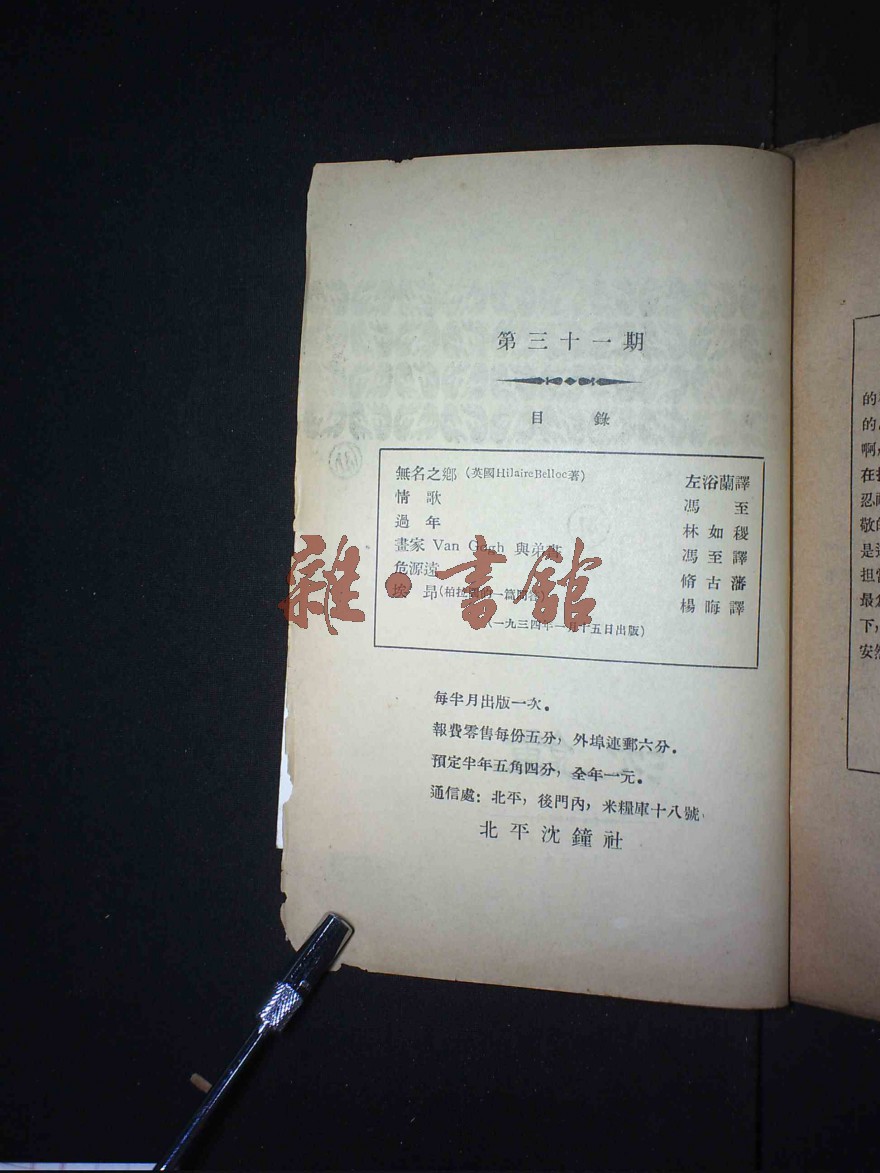 第三十一期
目錄
無名之鄉(英國Hilaire Belloc著) 左浴蘭譯
情歌 馮至
過年 林如稷
畫家 Van Gogh 與弟書 馮至譯
危源遠 脩古藩
埃昂(柏拉圖的一篇問答) 楊晦譯
(一九三四年一月十五日出版)
每半月出版一次。
報費零售每份五分,外埠連郵六分。
預定半年五角四分,全年一元。
通信處:北平,後門內,米糧庫十八號。
北平沈鐘社
雜·書館
的
的
啊,
在
忍
敬
是
担
最
下,
安然